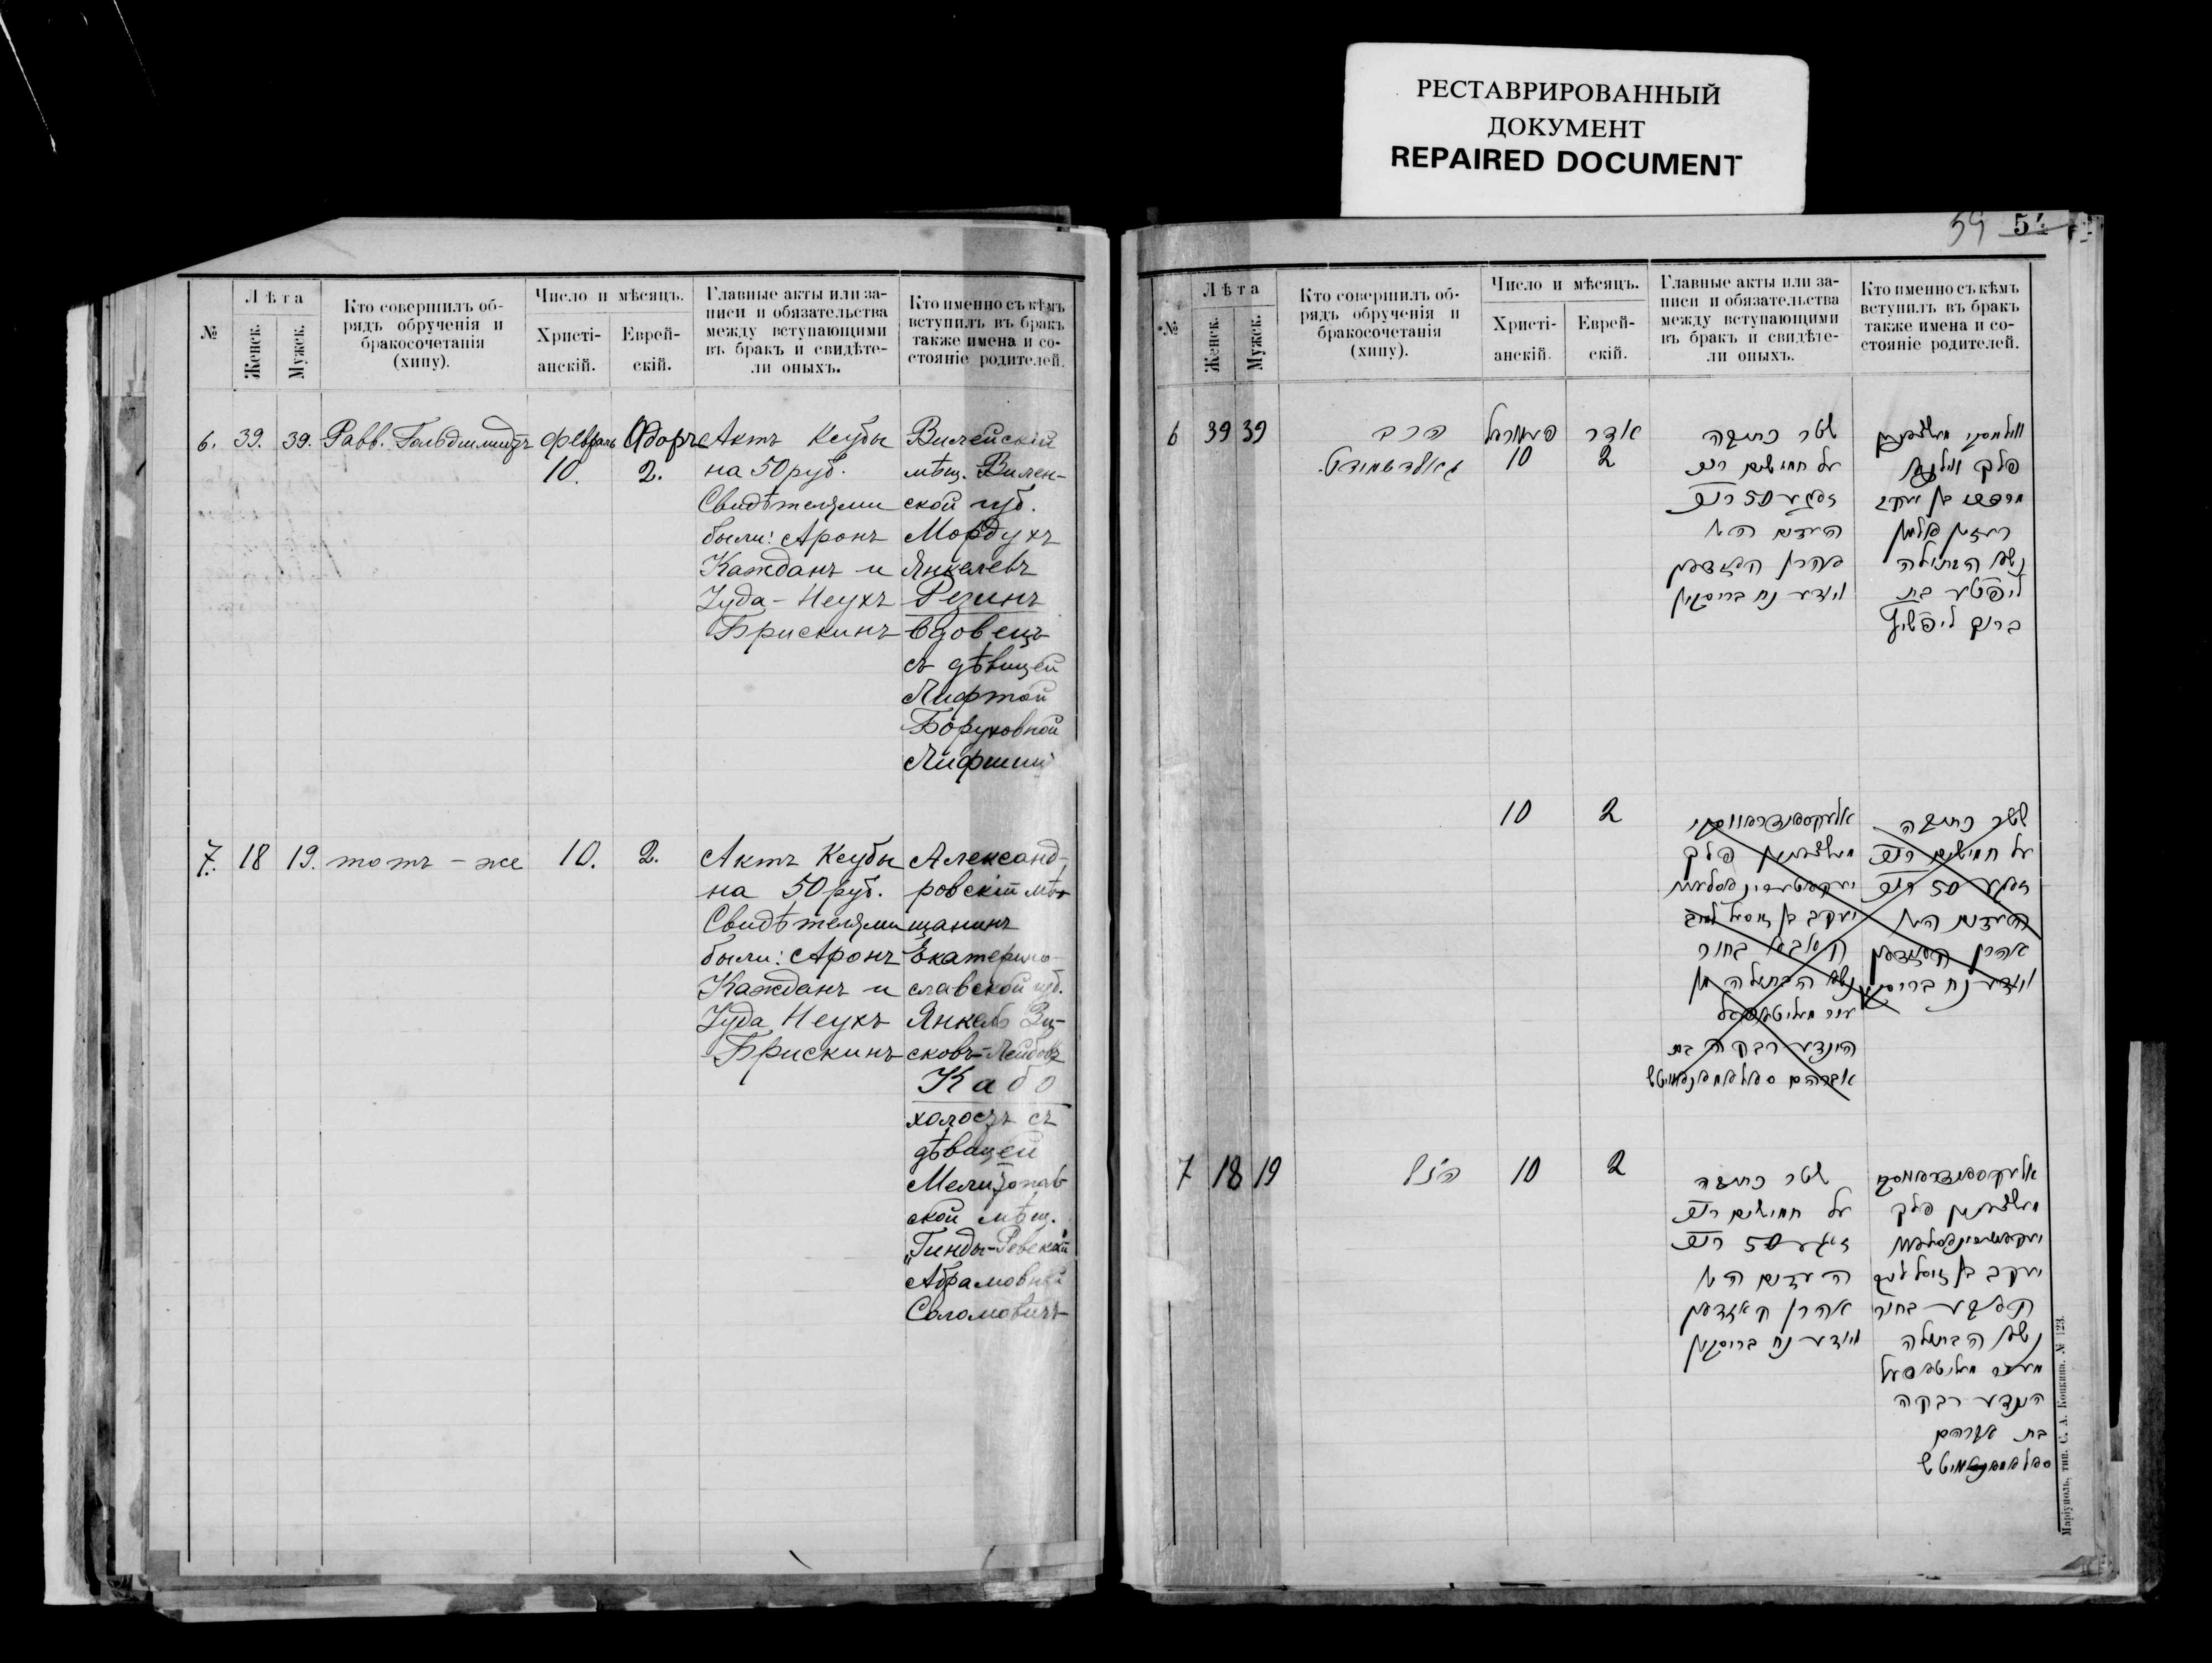 РЕСТАВРИРОВАННЫЙ
ДОКУМЕНТ
REPAIRED DOCUMENT
№
Лѣта
Женск.
Мужск.
Кто совершилъ об-
рядъ обрученія и
бракосочетанія
(хипу).
Число и мѣсяцъ.
Христі-
анскій.
Еврей-
скій.
Главные акты или за-
писи и обязательства
между вступающими
въ бракъ и свидѣте-
ли оныхъ.
Кто именно съ кѣмъ
вступилъ въ бракъ
также имена и со-
стояніе родителей.
6.
39.
39.
Равв. Гольдшмидтъ
февраль
10.
Адоръ
2.
Актъ Ксубы
на 50 руб.
Свидѣтелями
были: Аронъ
Кажданъ и
Іуда-Неухъ
Брискинъ
Вилейскій
мѣщ. Вилен-
ской губ.
Мордухъ
Янкелевъ
Резинъ
вдовецъ
съ дѣвицей
Лифтой
Боруховной
Лифшиц
7.
18
19.
тотъ-же
10.
2.
Актъ Ксубы
на 50 руб.
Свидѣтелями
были: Аронъ
Кажданъ и
Іуда Неухъ
Брискинъ
Александ-
ровскій мѣ-
щанинъ
Екатерино-
славской губ.
Янкель
Кабо
холостъ съ
дѣвицей
Мелитополь
ской мѣщ.
Гинды-Ревекой
Абрамовной
Соломовичъ
59 54
№
Лѣта
Женск.
Мужск.
Кто совершилъ об-
рядъ обрученія и
бракосочетанія
(хипу).
Число и мѣсяцъ.
Христі-
анскій.
Еврей-
скій.
Главные акты или за-
писи и обязательства
между вступающими
въ бракъ и свидѣте-
ли оныхъ.
Кто именно съ кѣмъ
вступилъ въ бракъ
также имена и со-
стояніе родителей.
6
39
39
הרב
גאלדשמידט
10
אדר
2
שטר כתובה
על חמישים רוב
50 רוב
העדים היו
אהרן קאזדאן
יודע נח בריסקין
בן יעקב
נשא הבתולה
ליפטע בת
ברוך ליפשיץ
10
2
שטר כתובה
על חמישים רוב
50 רוב
העדים היו
אהרן קאזדאן
יודע נח בריסקין
יעקב בן
בחור
נשא הבתולה
הינדע רבקה בת
אברהם
7
18
19
הנ״ל
10
2
שטר כתובה
על חמישים רוב
50 רוב
העדים היו
אהרן קאזדאן
יודע נח בריסקין
יעקב בן
בחור
נשא הבתולה
הינדע רבקה
בת אברהם
Маріуполь, тип. С. А. Копкина. № 123.